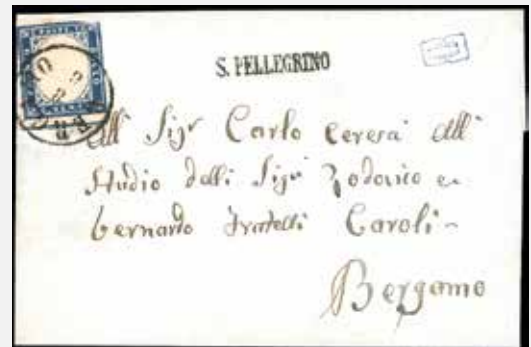 S. PELLEGRINO
All Sigr Carlo Ceresa All
Studio delli Sigri Lodovico e
bernardo Fratelli Caroli
Bergamo